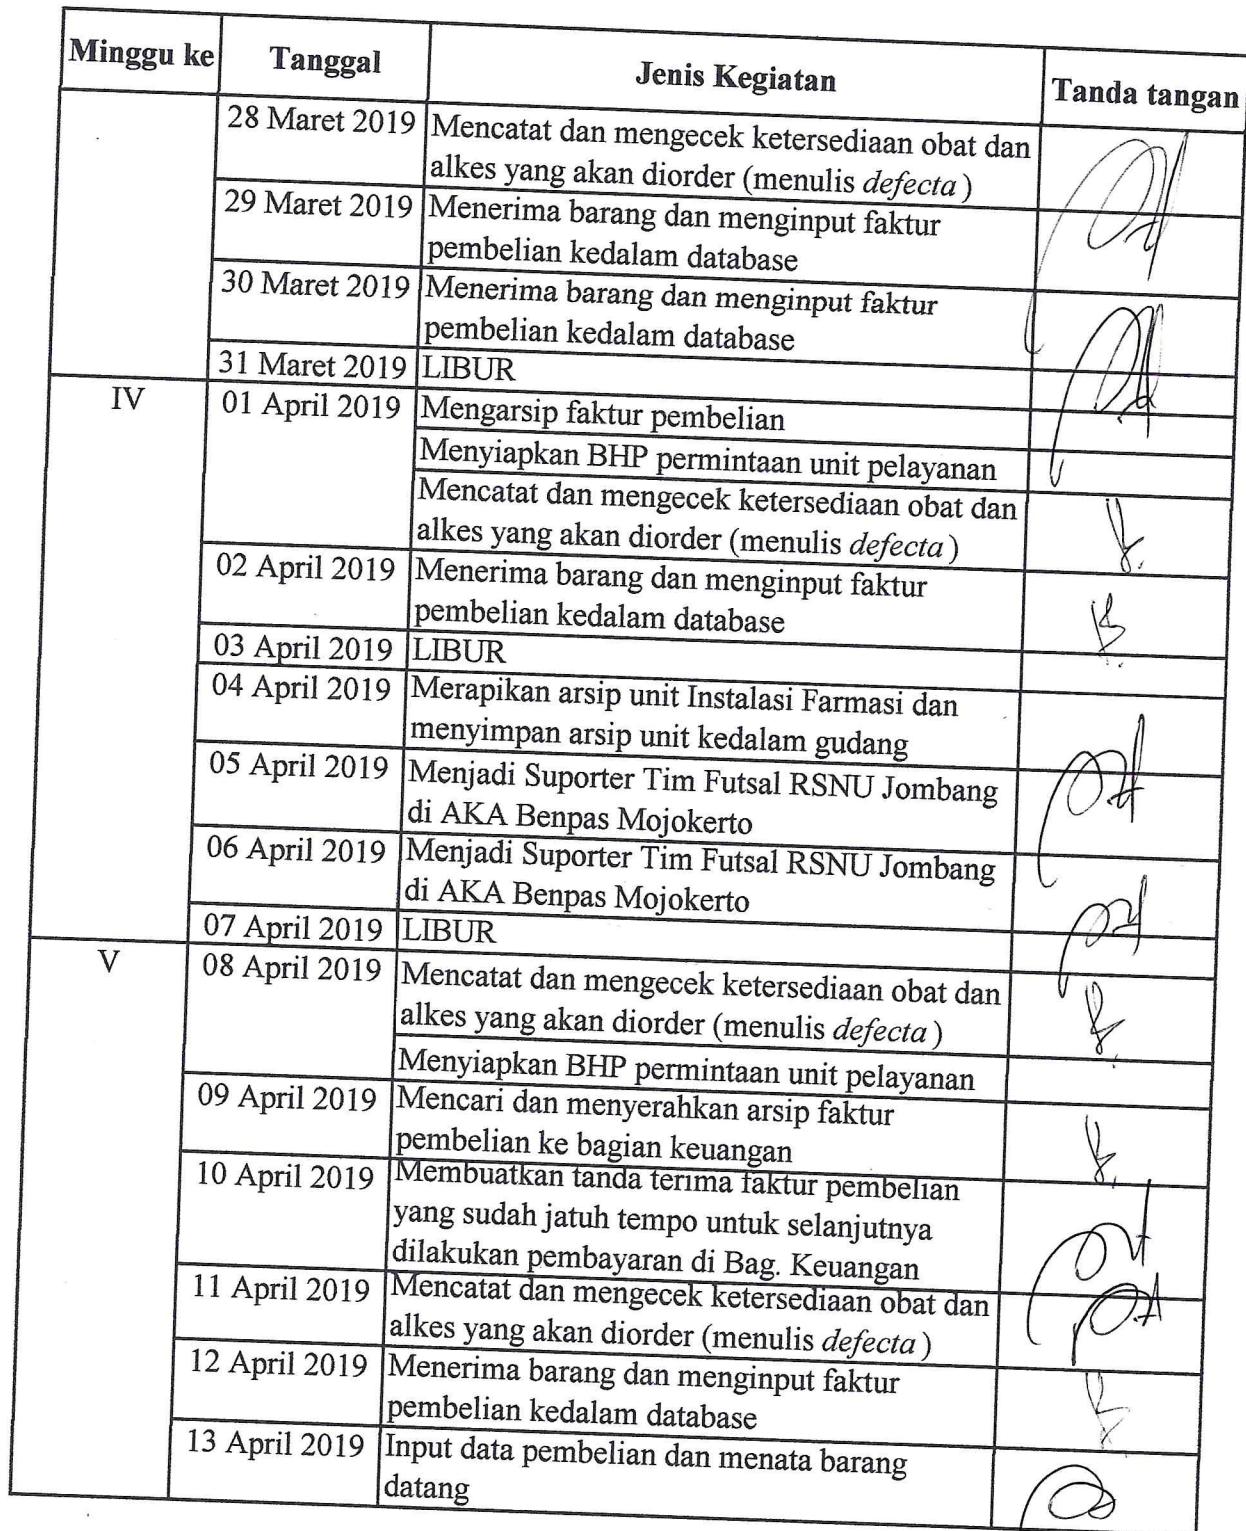 Minggu ke Tanggal Jenis Kegiatan Tanda tangan
28 Maret 2019 Mencatat dan mengecek ketersediaan obat dan
alkes yang akan diorder (menulis defecta)
29 Maret 2019 Menerima barang dan menginput faktur
pembelian kedalam database
30 Maret 2019 Menerima barang dan menginput faktur
pembelian kedalam database
31 Maret 2019 LIBUR
IV 01 April 2019 Mengarsip faktur pembelian
Menyiapkan BHP permintaan unit pelayanan
Mencatat dan mengecek ketersediaan obat dan
alkes yang akan diorder (menulis defecta)
02 April 2019 Menerima barang dan menginput faktur
pembelian kedalam database
03 April 2019 LIBUR
04 April 2019 Merapikan arsip unit Instalasi Farmasi dan
menyimpan arsip unit kedalam gudang
05 April 2019 Menjadi Suporter Tim Futsal RSNU Jombang
di AKA Benpas Mojokerto
06 April 2019 Menjadi Suporter Tim Futsal RSNU Jombang
di AKA Benpas Mojokerto
07 April 2019 LIBUR
V 08 April 2019 Mencatat dan mengecek ketersediaan obat dan
alkes yang akan diorder (menulis defecta)
Menyiapkan BHP permintaan unit pelayanan
09 April 2019 Mencari dan menyerahkan arsip faktur
pembelian ke bagian keuangan
10 April 2019 Membuatkan tanda terima faktur pembelian
yang sudah jatuh tempo untuk selanjutnya
dilakukan pembayaran di Bag. Keuangan
11 April 2019 Mencatat dan mengecek ketersediaan obat dan
alkes yang akan diorder (menulis defecta)
12 April 2019 Menerima barang dan menginput faktur
pembelian kedalam database
13 April 2019 Input data pembelian dan menata barang
datang